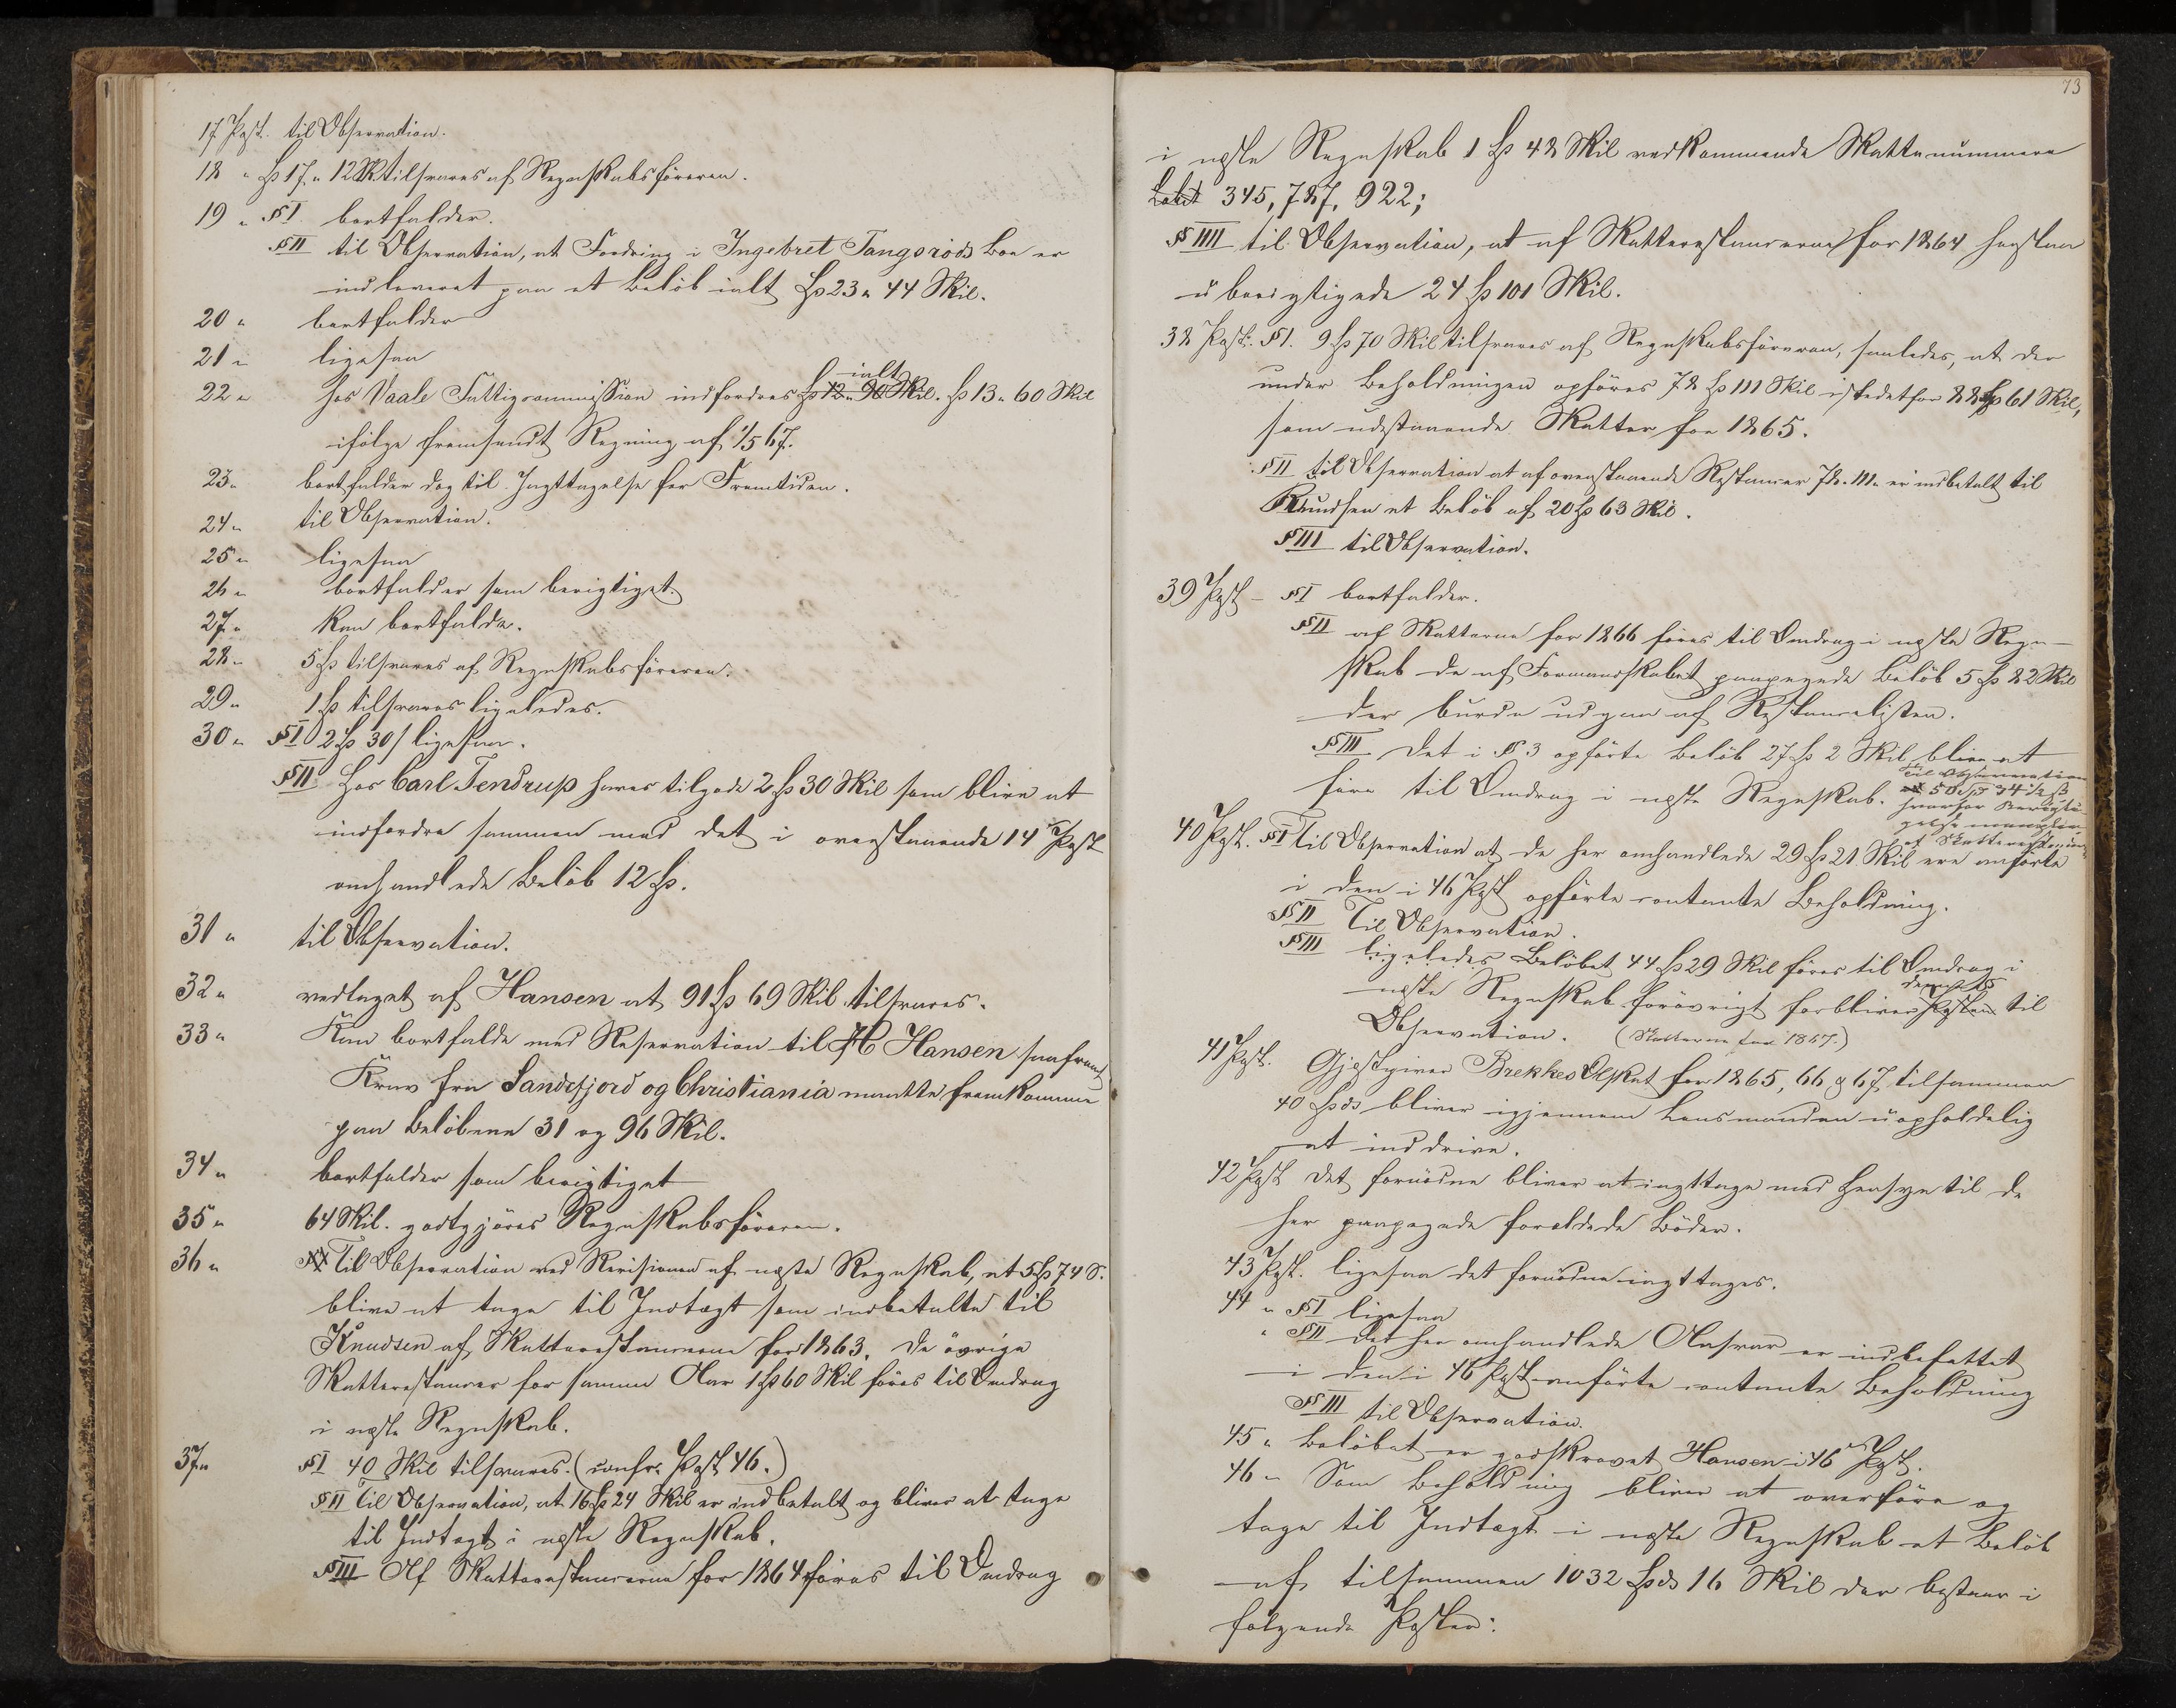 17 Post. til Observation.
18 " Sp 17 " 12 Sk tilsvares af Regnskabsföreren.
19 " § I bortfalder.
§ II til Observation, at Fordring i Ingebret Tangsröds Boe er
indleveret paa et Belöb ialt Sp 23 " 44 Skil.
20 " bortfalder
21 " ligesaa
22 " hos Vaale Fattigcommission indfordres Sp 12 " 90 Skil. ialt Sp 13 " 60 Skil
ifölge fremsendt Regning af 1/5 67.
23 " bortfalder dog til Iagttagelse for Fremtiden.
24 " til Observation.
25 " ligesaa
26 " bortfalder som berigtiget.
27 " Kan bortfalde.
28 " 5 Sp tilsvares af Regnskabsföreren.
29 " 1 Sp tilsvares ligeledes.
30 " § I 2 Sp 30 s ligesaa.
§ II Hos Carl Tendrup haves tilgode 2 Sp 30 Skil som blive at
indfordre sammen med det i ovenstaaende 14 Post
omhandlede Belöb 12 Sp.
31 " til Observation.
32 " vedtaget af Hansen at 91 Sp 69 Skil tilsvares.
33 " Kan bortfalde med Reservation til H Hansen saafremt
Krav fra Sandefjord og Christiania maatte fremkomme
paa Belöbene 31 og 96 Skil.
34 " bortfalder som berigtiget
35 " 64 Skil. godtgjöres Regnskabsföreren.
36 " Til Observation ved Revisionen af næste Regnskab, at 5 Sp 74 S.
blive at tage til Indtægt som indbetalte til
Knudsen af Skatterestancerne for 1863. De övrige
Skatterestancer for samme Aar 1 Sp 60 Skil föres til Omdrag
i næste Regnskab.
37 " § I 40 Skil tilsvares. (confr. Post 46.)
§ II Til Observation, at 16 Sp 24 Skil er indbetalt og bliver at tage
til Indtægt i næste Regnskab.
§ III Af Skatterestancerne for 1864 föres til Omdrag
73
i næste Regnskab 1 Sp 48 Skil vedkommende Skattenummere
345, 787, 922;
§ IIII til Observation, at af Skatterestancerne for 1864 henstaa
uberigtigede 24 Sp 101 Skil.
38 Post. § I. 9 Sp 70 Skil tilsvares af Regnskabsföreren, saaledes, at der
under Beholdningen opföres 78 Sp 111 Skil istedetfor 88 Sp 61 Skil,
som udestaaende Skatter for 1865.
§ II til Observation at af ovenstaaende Restancer 78 " 111 " er indbetalt til
Knudsen et Belöb af 20 Sp 63 Skil.
§ III til Observation.
39 Post – § I bortfalder.
§ II af Skatterne for 1866 föres til Omdrag i næste Regn-
skab de af Formandskabet paapegede Belöb 5 Sp 82 Skil
der burde udgaa af Restancelisten.
§ III Det i § 3 opförte Belöb 27 Sp 2 Skil blive at
före til Omdrag i næste Regnskab. Til Observation
50 Sp 34 1/2 ß
hvorfor Berigti-
gelse mangler
af Skatterestancer
40 Post. § I Til Observation at de her omhandlede 29 Sp 21 Skil ere anförte
i den i 46 Post opförte contante Beholdning.
§ II Til Observation.
§ III ligeledes Belöbet 44 Sp 29 Skil föres til Omdrag i
næste Regnskab forövrigt forbliver Posten til
Observation. (Skatterne for 1867.)
41 Post. Gjestgiver Brekkes Ölskat for 1865, 66 og 67 tilsammen
40 Spd bliver igjennem Lensmanden uopholdelig
at inddrive.
42 Post Det fornödne bliver at iagttage med Hensyn til de
her paapegede forældede Böder.
43 Post. ligesaa det fornödne iagttages.
44 " § I ligesaa
" § II Det her omhandlede Ansvar er indbefattet
i den i 46 Post anförte contante Beholdning
§ III til Observation.
45 " Belöbet er godskrevet Hansen i 46 Post.
46 " Som Beholdning bliver at overföre og
tage til Indtægt i næste Regnskab et Belöb
af tilsammen 1032 Spd 16 Skil der bestaar i
fölgende Poster: